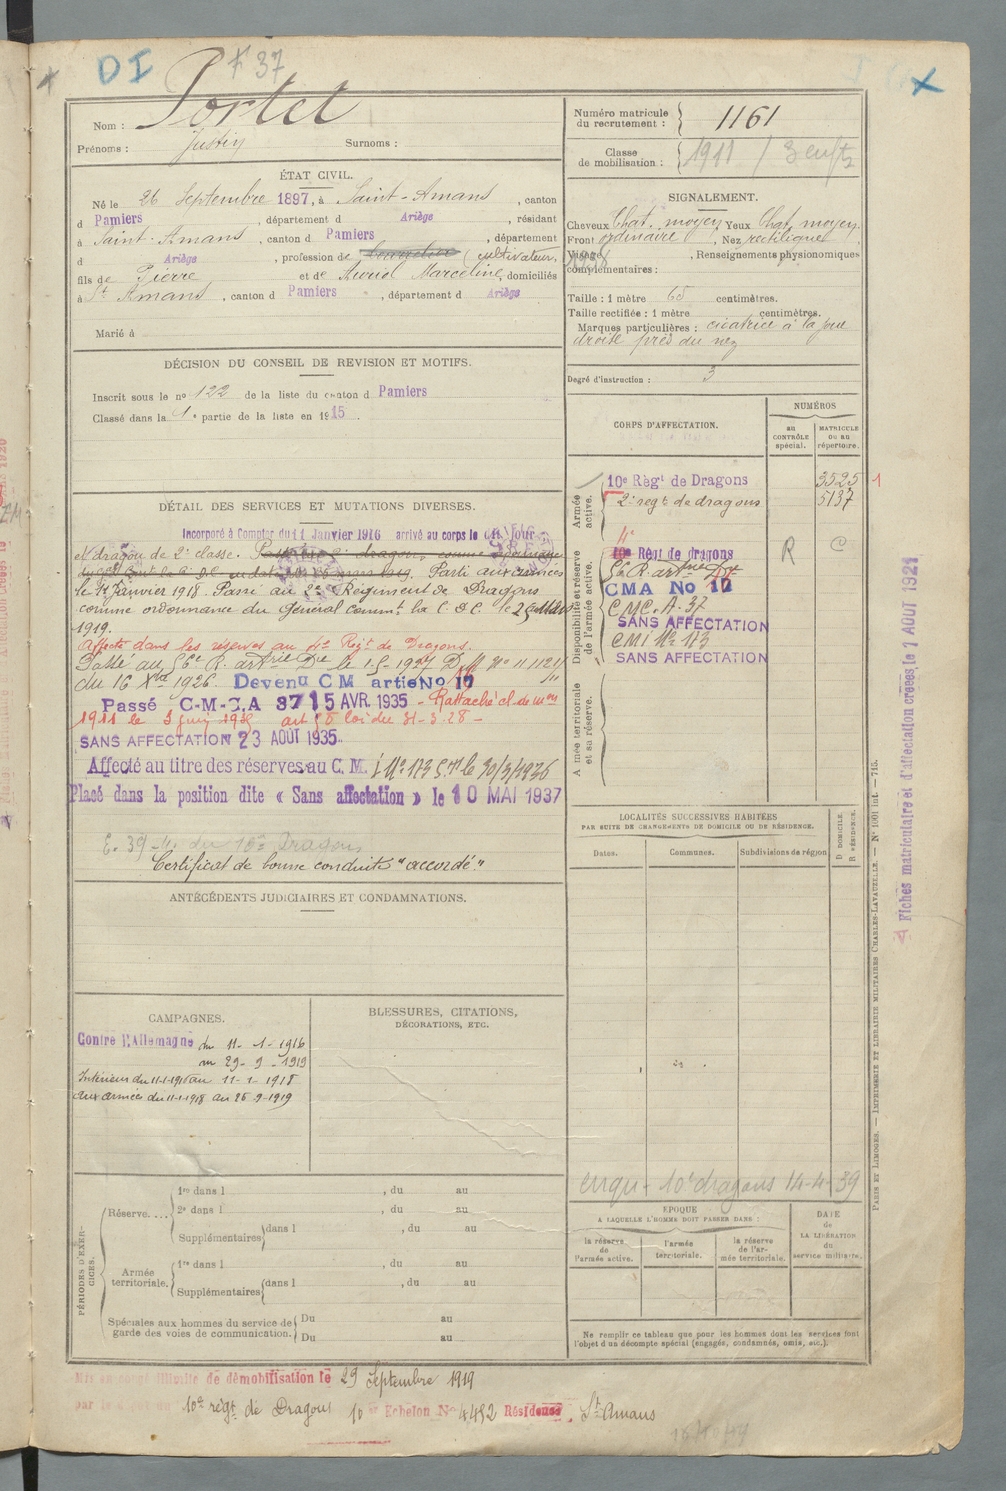 DI
F 37
Nom : Portet
Prénoms : Justin Surnoms :
Numéro matricule du recrutement : 1161
Classe de mobilisation : 1911
ÉTAT CIVIL.
Né le 26 Septembre 1897, à Saint-Amans, canton
d Pamiers, département d Ariège, résidant
à Saint-Amans, canton d Pamiers, département
d Ariège, profession de cultivateur,
fils de Pierre et de Muriel Marceline, domiciliés
à St Amans, canton d Pamiers, département d Ariège
Marié à
SIGNALEMENT.
Cheveux Chat. moyen Yeux Chat. moyen
Front ordinaire, Nez rectiligne
Visage, Renseignements physionomiques
complémentaires :
Taille : 1 mètre 65 centimètres.
Taille rectifiée : 1 mètre centimètres.
Marques particulières : cicatrice à la joue
droite près du nez
Degré d'instruction : 3
DÉCISION DU CONSEIL DE REVISION ET MOTIFS.
Inscrit sous le no 122 de la liste du canton d Pamiers
Classé dans la 1e partie de la liste en 1915
CORPS D'AFFECTATION.
NUMÉROS
au CONTRÔLE spécial.
MATRICULE ou au répertoire.
Armée active.
10e Régt de Dragons 3525
2e regt de dragons 5137
Disponibilité et réserve de l'armée active.
Régt de dragons R C
56 R. artrie Dre
CMA No 12
CMC.A.37
SANS AFFECTATION
CMI No 173
SANS AFFECTATION
Armée territoriale et sa réserve.
DÉTAIL DES SERVICES ET MUTATIONS DIVERSES.
Incorporé à Compter du 11 Janvier 1916 arrivé au corps le dit Jour
et dragon de 2e classe.
Parti aux armées
le 11 Janvier 1918. Passé au 2e Régiment de Dragons
comme ordonnance du Général Commt la
1919.
Affecté dans les réserves au 4e Régt de Dragons.
Passé au 56e R. artrie Dre le 1-5-1927 D.M. No
du 16 Xbre 1926. Devenu CM artie No
Passé C-M-C.A 37 15 AVR. 1935 - Rattaché cl. de mon
1911 le 3 juin 1935 art 58 loi du 31-3-28 -
SANS AFFECTATION 23 AOUT 1935
Affecté au titre des réserves au C. M. I No 173 le 30/3/1936
Placé dans la position dite « Sans affectation » le 10 MAI 1937
Certificat de bonne conduite "accordé".
LOCALITÉS SUCCESSIVES HABITÉES
PAR SUITE DE CHANGEMENTS DE DOMICILE OU DE RÉSIDENCE.
Dates. Communes. Subdivisions de région
D DOMICILE.
R RÉSIDENCE.
ANTÉCÉDENTS JUDICIAIRES ET CONDAMNATIONS.
CAMPAGNES.
Contre l'Allemagne du 11-1-1916
au 29-9-1919
Intérieur du 11-1-1916 au 11-1-1918
Aux armées du 11-1-1918 au 28-9-1919
BLESSURES, CITATIONS,
DÉCORATIONS, ETC.
10e dragons 14-4-39
PÉRIODES D'EXERCICES.
Réserve....
1re dans l , du au
2e dans l , du au
Supplémentaires dans l , du au
Armée territoriale.
1re dans l , du au
Supplémentaires dans l , du au
Spéciales aux hommes du service de garde des voies de communication.
Du au
Du au
EPOQUE
A LAQUELLE L'HOMME DOIT PASSER DANS :
la réserve de l'armée active.
l'armée territoriale.
la réserve de l'armée territoriale.
DATE de LA LIBÉRATION du service militaire.
Ne remplir ce tableau que pour les hommes dont les services font
l'objet d'un décompte spécial (engagés, condamnés, omis, etc.).
Mis en congé illimité de démobilisation le 29 Septembre 1919
par le dépôt du 10e régt de Dragons 10e Echelon No 4492 Résidence, St Amans
PARIS ET LIMOGES. — IMPRIMERIE ET LIBRAIRIE MILITAIRES CHARLES-LAVAUZELLE. — No 1001 int. — 715.
Fiches matriculaire et d'affectation créées le 1 AOUT 1921